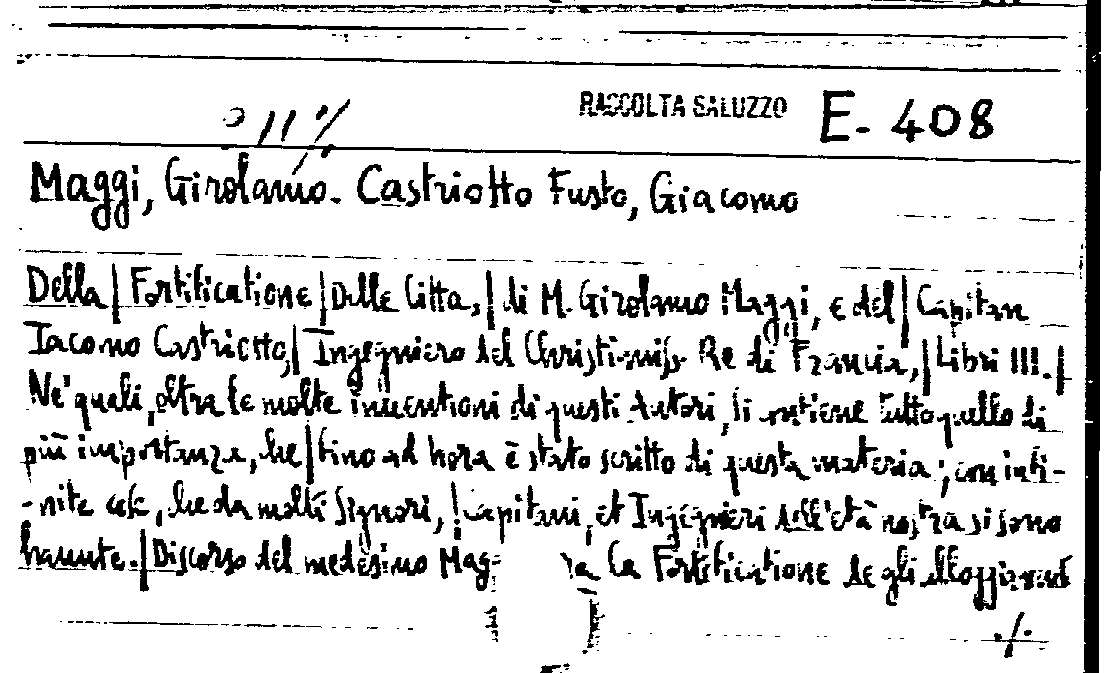 RACCOLTA SALUZZO E-408
Maggi, Girolamo. Castriotto Fusto, Giacomo
Della | Fortificatione | Delle Citta, | di M. Girolamo Maggi, e del | Capitan
Iacomo Castriotto, | Ingegniero del Christianiss. Re di Francia, | Libri III. |
Ne' quali, oltra le molte inuentioni di questi Autori, si contiene tutto quello di
più importanza, che | fino ad hora è stato scritto di questa materia; con infi-
-nite cose, che da molti Signori, | Capitani, et Ingegnieri dell'età nostra si sono
hauute. | Discorso del medesimo Mag- la Fortificatione de gli alloggiamenti
./.